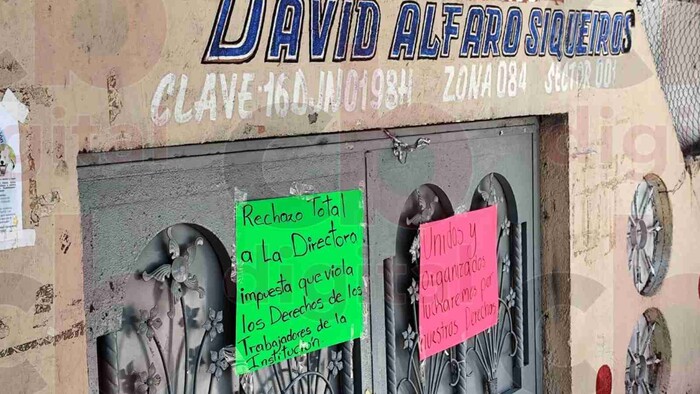 DAVID ALFARO SIQUEIROS
CLAVE·16DJN0198H ZONA 084 SECTOR 001
Rechazo Total
a La Directora
impuesta que viola
los Derechos de los
Trabajadores de la
Institución
Unidos y
organizados
lucharemos por
nuestros Derechos